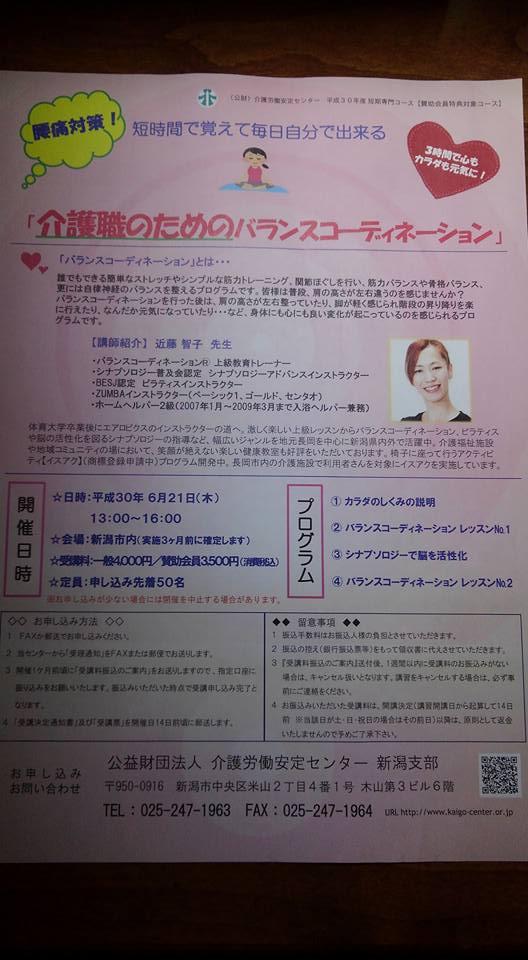 （公財）介護労働安定センター　平成３０年度 短期専門コース【賛助会員特典対象コース】
腰痛対策！
短時間で覚えて毎日自分で出来る
３時間で心も
カラダも元気に！
「介護職のためのバランスコーディネーション」
「バランスコーディネーション」とは・・・
誰でもできる簡単なストレッチやシンプルな筋力トレーニング、関節ほぐしを行い、筋力バランスや骨格バランス、
更には自律神経のバランスを整えるプログラムです。皆様は普段、肩の高さが左右違うのを感じませんか？
バランスコーディネーションを行った後は、肩の高さが左右整っていたり、脚が軽く感じられ階段の昇り降りを楽
に行えたり、なんだか元気になっていたり・・・など、身体にも心にも良い変化が起こっているのを感じられるプロ
グラムです。
【講師紹介】 近藤 智子 先生
・バランスコーディネーション® 上級教育トレーナー
・シナプソロジー普及会認定 シナプソロジーアドバンスインストラクター
・BESJ認定 ピラティスインストラクター
・ZUMBAインストラクター（ベーシック1、ゴールド、センタオ）
・ホームヘルパー2級（2007年1月～2009年3月まで入浴ヘルパー兼務）
体育大学卒業後にエアロビクスのインストラクターの道へ。激しく楽しい上級レッスンからバランスコーディネーション、ピラティス
や脳の活性化を図るシナプソロジーの指導など、幅広いジャンルを地元長岡を中心に新潟県内外で活躍中。介護福祉施設
や地域コミュニティの場において、笑顔が絶えない楽しい健康教室も好評をいただいております。椅子に座って行うアクティビ
ティ【イスアク】（商標登録申請中）プログラム開発中。長岡市内の介護施設で利用者さんを対象にイスアクを実施しています。
開催日時
☆日時：平成30年 6月21日（木）
13：00～16：00
☆会場：新潟市内（実施3ヶ月前に確定します）
☆受講料：一般4,000円／賛助会員3,500円（消費税込）
☆定員：申し込み先着50名
※お申し込みが少ない場合には開催を中止する場合があります。
プログラム
① カラダのしくみの説明
② バランスコーディネーション レッスン№1
③ シナプソロジーで脳を活性化
④ バランスコーディネーション レッスン№2
◇◇ お申し込み方法 ◇◇
1 FAXか郵送でお申し込みください。
2 当センターから「受理通知」をFAXまたは郵便でお送りします。
3 開催1ヶ月前頃に「受講料振込のご案内」をお送りしますので、指定口座に
振り込みをお願いいたします。振込みいただいた時点で受講申し込み完了と
なります。
4 「受講決定通知書」及び「受講票」を開催日14日前頃に郵送します。
◆◆ 留意事項 ◆◆
1 振込手数料はお振込人様の負担とさせていただきます。
2 振込の控え（銀行振込票等）をもって領収書に代えさせていただきます。
3 『受講料振込のご案内』送付後、1週間以内に受講料のお振込みがない
場合は、キャンセル扱いとなります。講習をキャンセルする場合は、必ず事
前にご連絡をください。
4 お振込みいただいた受講料は、開講決定（講習開講日から起算して14日
前 ※当該日が土・日・祝日の場合はその前日）以降は、原則として返金
いたしませんので予めご了承下さい。
お申し込み
お問い合わせ
公益財団法人 介護労働安定センター 新潟支部
〒950-0916 新潟市中央区米山２丁目４番１号 木山第３ビル６階
TEL：025-247-1963 FAX：025-247-1964 URL http://www.kaigo-center.or.jp